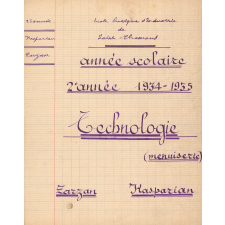 Kasparian
Zarzan
École Pratique d'Industrie
de
Saint-Chamond
année scolaire
2e année 1934-1935
Technologie
(menuiserie)
Zarzan Kasparian